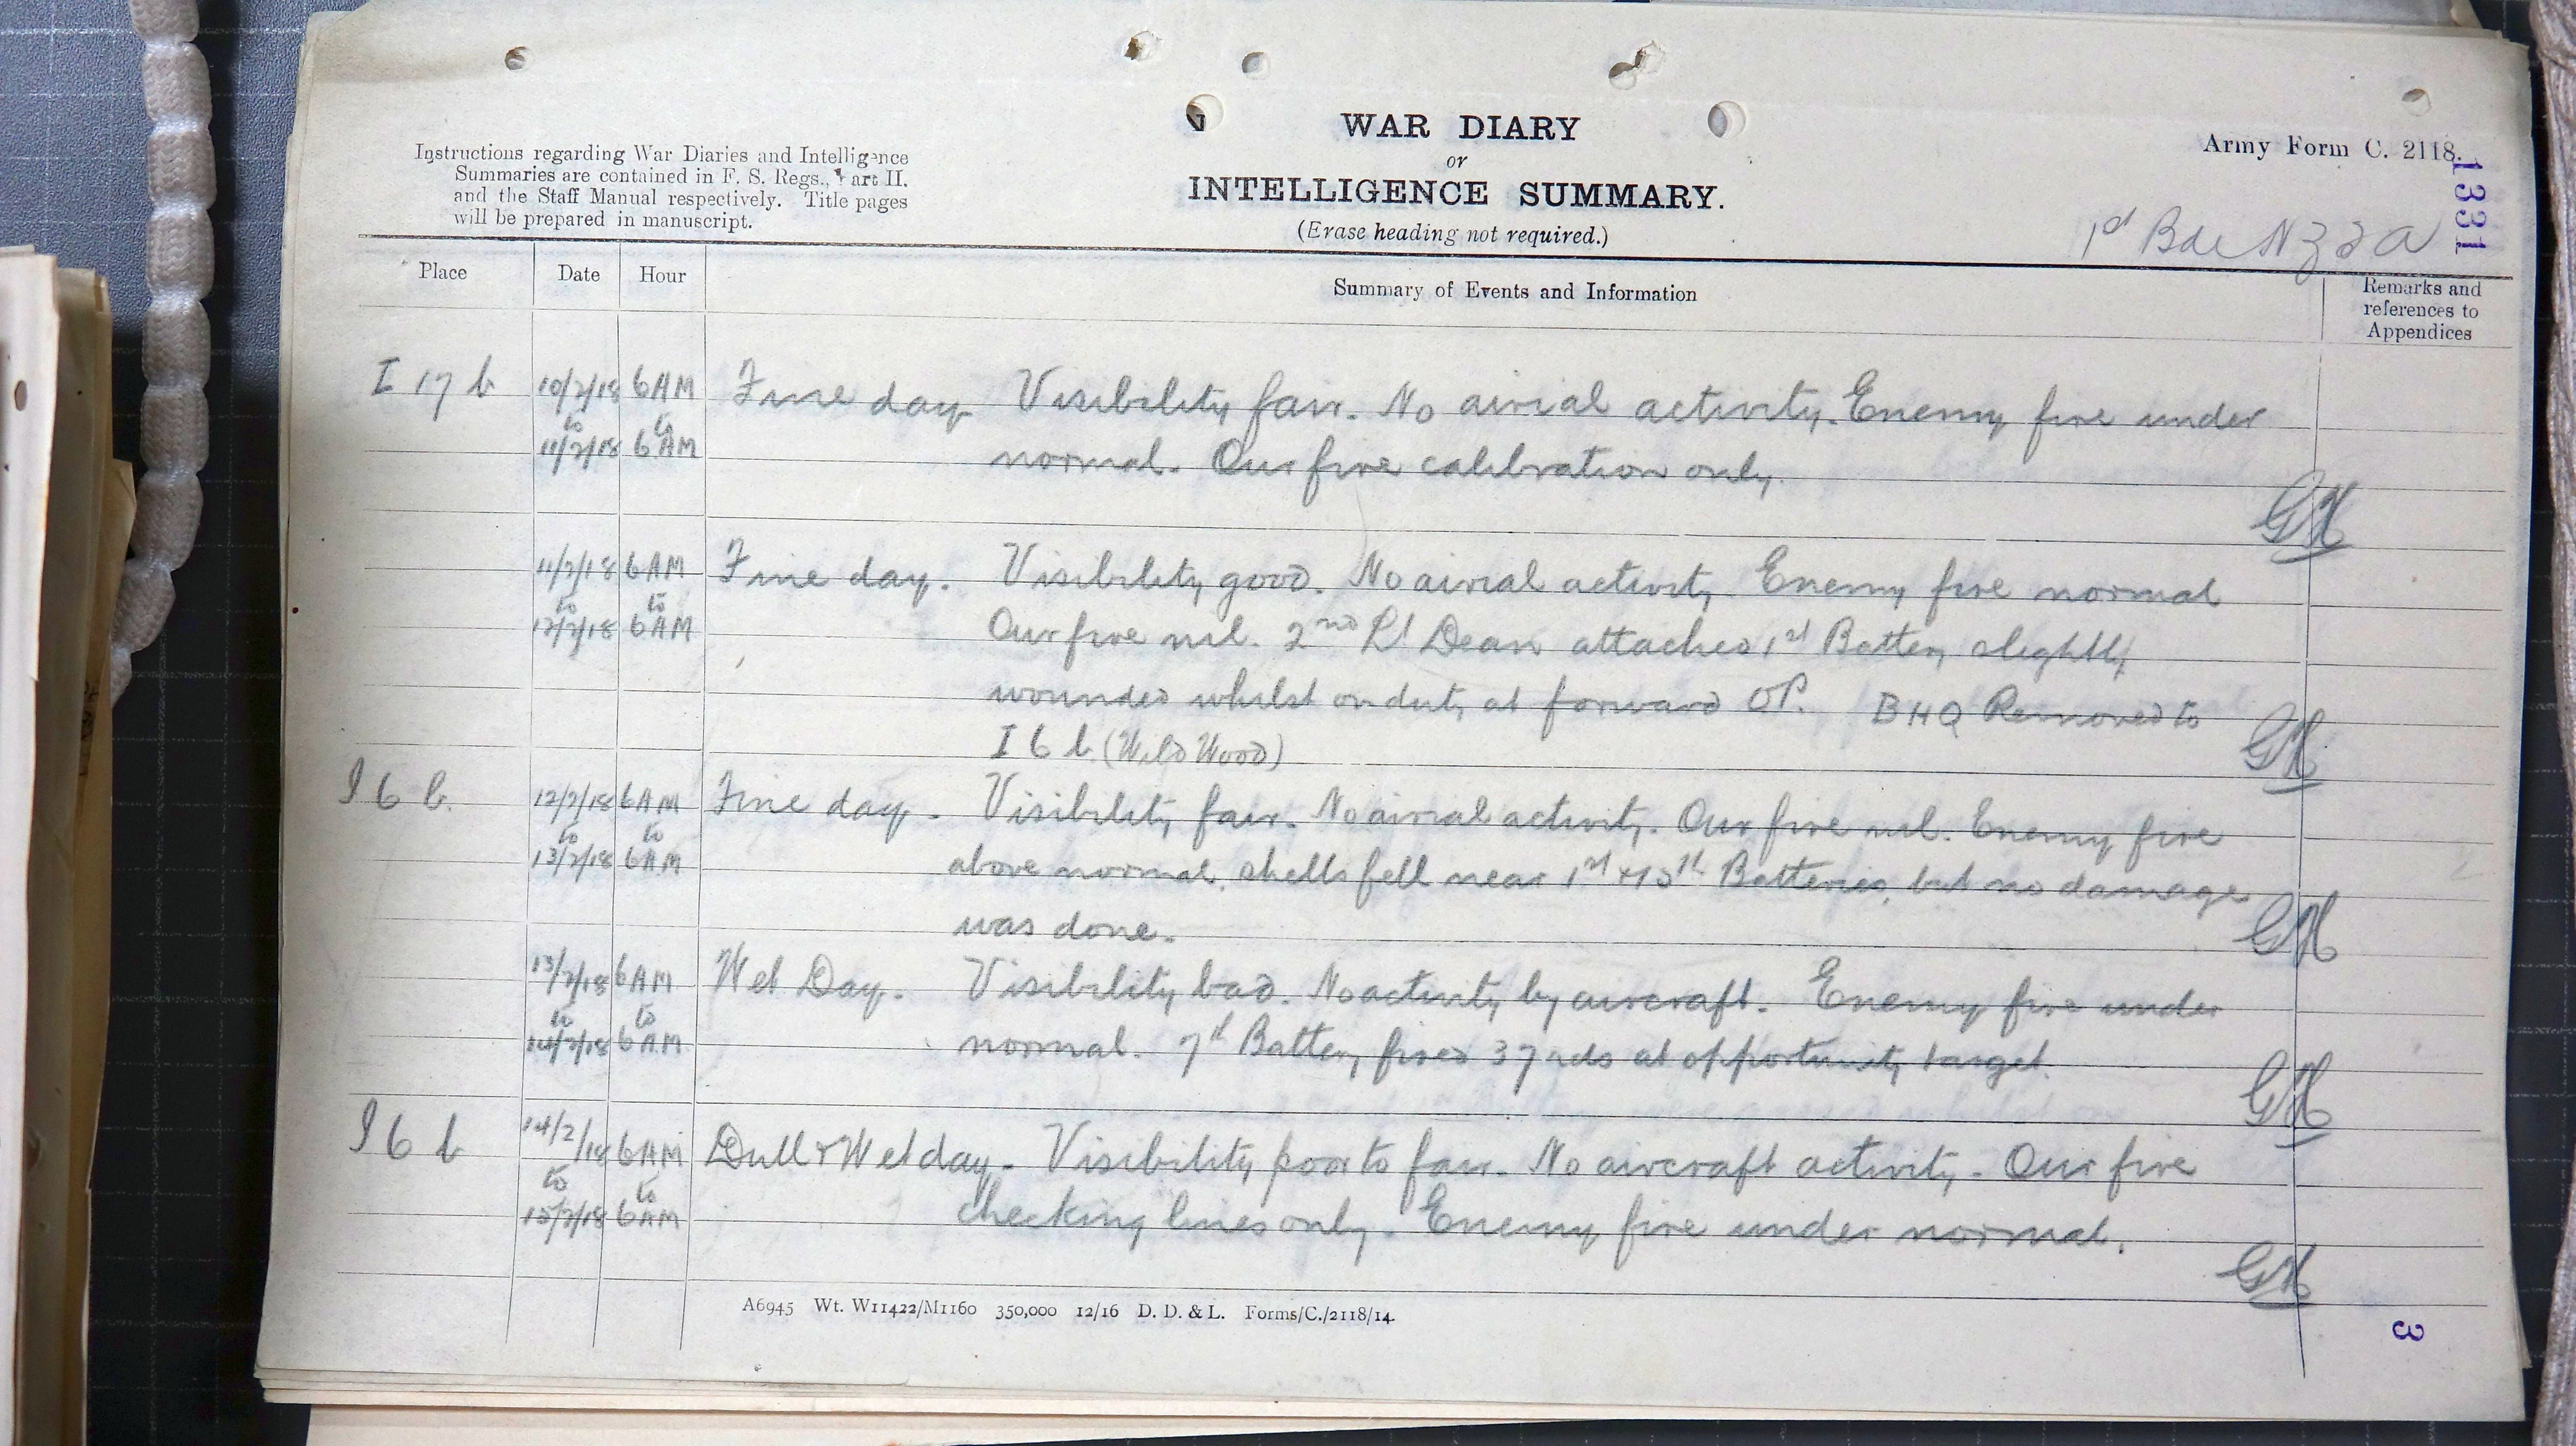 WAR DIARY
or
INTELLIGENCE SUMMARY.
(Erase heading not required.)
Instructions regarding War Diaries and Intelligence
Summaries are contained in F. S. Regs., Part II.
and the Staff Manual respectively. Title pages
will be prepared in manuscript.
Army Form C. 2118.
1331
1st Bde NZFA
Place Date Hour Summary of Events and Information Remarks and
references to
Appendices
I 17 b 10/2/18 6AM Fine day. Visibility fair. No airial activity. Enemy fire under
to to
11/2/18 6AM normal. Our fire calibration only.
GH
11/2/18 6AM Fine day. Visibility good. No airial activity Enemy fire normal
to to
12/2/18 6AM Our fire nil. 2nd Lt Dean attached 1st Battery slightly
wounded whilst on duty at forward OP. BHQ Removed to
I 6 b (Wild Wood) GH
I 6 b. 12/2/18 6AM Fine day. Visibility fair. No airial activity. Our fire nil. Enemy fire
to to
13/2/18 6AM above normal, shells fell near 1st + 15th Batteries, but no damage
was done. GH
13/2/18 6AM Wet Day. Visibility bad. No activity by aircraft. Enemy fire under
to to
14/2/18 6AM normal. 7th Battery fired 37 rds at opportunity target.
GH
I 6 b 14/2/18 6AM Dull & Wet day. Visibility poor to fair. No aircraft activity. Our fire
to to
15/2/18 6AM checking lines only. Enemy fire under normal.
GH
A6945 Wt. W11422/M1160 350,000 12/16 D. D. & L. Forms/C./2118/14.
3